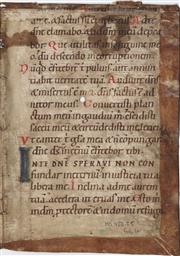 dne clamabo & ad dm meu depca
bor Que utilitas in sanguine me
o du descendo in corruptionem
Nuqd confitebit t puluis aut annun
tiabit ueritate tua Audiuit dns
& misertus e mei dns factus e ad
iutor meus Conuertisti plan
ctum meu in gaudiu m conscidisti
saccu meu & circudedisti me letitia
Ut cantet t gla mea & n copungar
dne ds ms in eternu confitebor tibi
INTE DNE SPERAVI NON CON
fundar in eternu in iusticia tua
libera me Inclina ad me aurem
tua accelera ut eruas me Esto m
in dm ptectore & in domu refugii